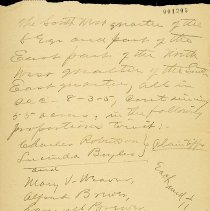 991295
The South West quarter of the
S. E qr and part of the
East part of the North
West quarter of the South
East quarter, All in
sec. 8-3-5, containing
55 acres, in the following
proportions to wit:
Charles Robertson } Plaintiffs
Lucinda Bayless
and
Mary V. Weaver Each
Alfred Brown and
Brown